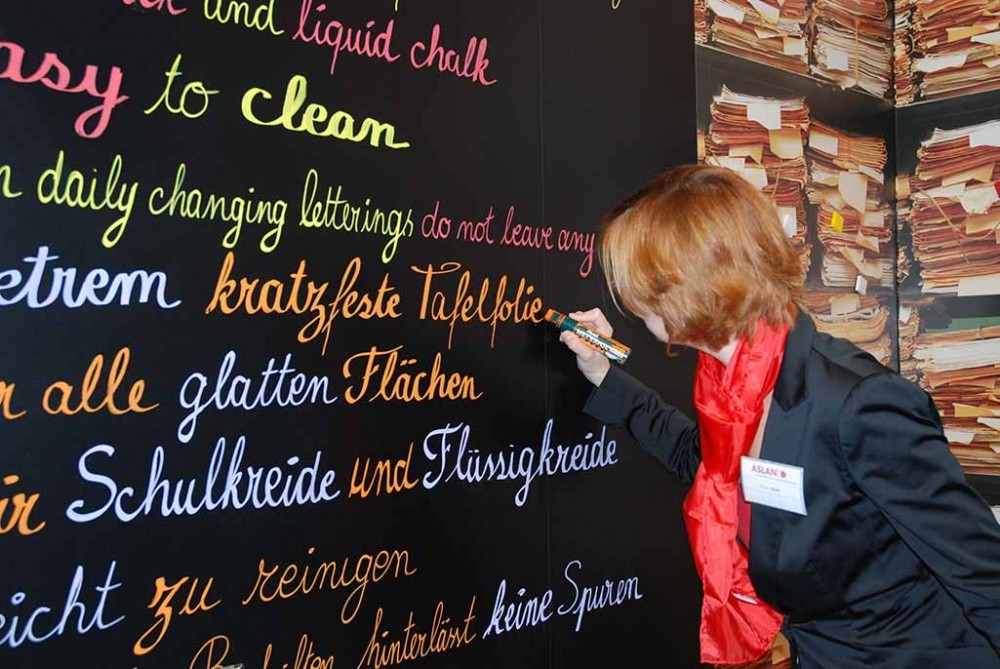 and liquid chalk
easy to clean
daily changing letterings do not leave any
etrem kratzfeste Tafelfolie
r alle glatten Flächen
ir Schulkreide und Flüssigkreide
eicht zu reinigen
hinterlässt keine Spuren
ASLAN